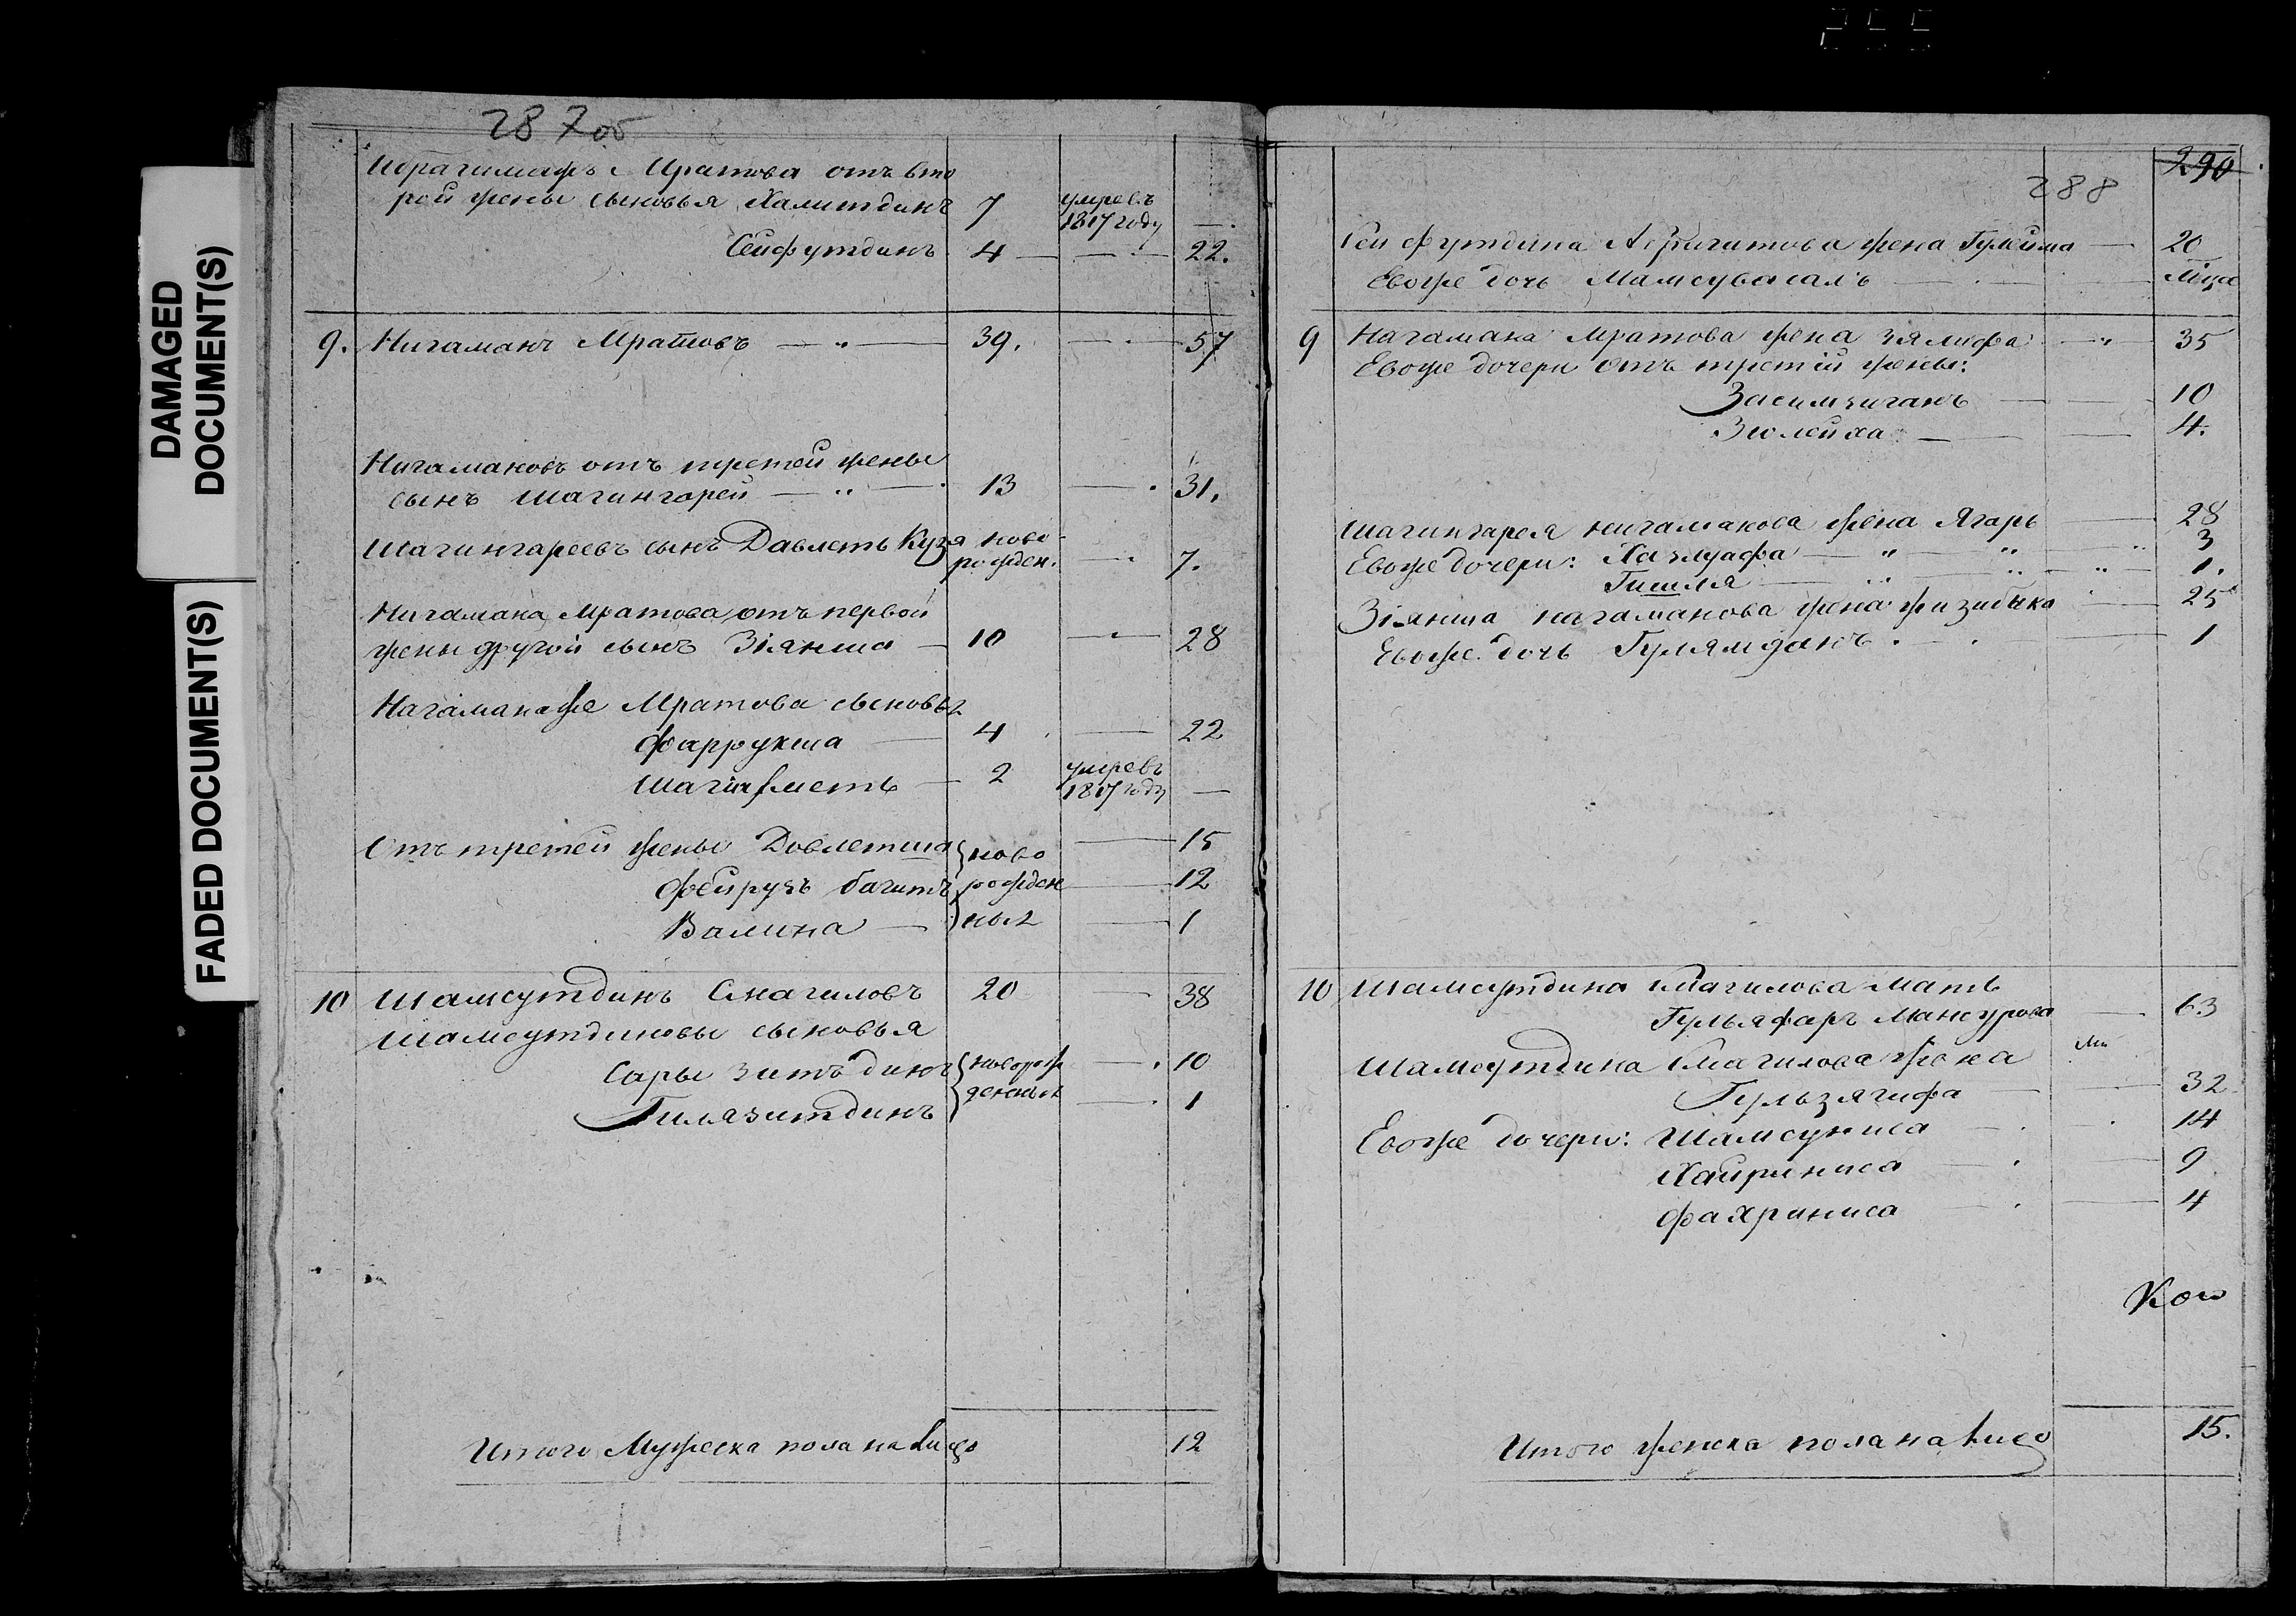 DAMAGED
DOCUMENT(S)
FADED DOCUMENT(S)
287об
Ибрагимажъ Мратова отъ вто
рой жены сыновья Халитдинъ 7 умре въ 1817 году —
Сейфутдинъ 4 — 22.
9. Нигаманъ Мратовъ — 39. — 57
Нигамановъ отъ третей жены
сынъ Шагингарей — 13 — 31.
Шагингареевъ сынъ Давлеть Куза ново рожден. — 7.
Нигамана Мратова отъ первой
жены другой сынъ Зіянша — 10 — 28
Нагаманаже Мратова сыновья
Фаррукша — 4 — 22
Шагиахметь — 2 умре въ 1817 году —
Отъ третей жены Довлетша ново — 15
Фейрузъ багитъ рожден — 12
Валиша — ныя — 1
10 Шамсутдинъ Смагиловъ 20 — 38
Шамсутдиновы сыновья
Сары зитъдинъ новорож — 10
Гилязитдинъ денныя — 1
Итого Мужеска пола на лицо 12
290
288
Сейфутдина Абрагимова жена Гулюйма — 20
Евоже дочь Мамсувасалъ — Мца
9 Нагамана Мратова жена Зялифа — 35
Евоже дочери отъ третій жены:
Засимзиганъ — 10
Зюлейха — 4.
Шагингарея нигаманова жена Ягарь — 28
Евоже дочери: Хазмуафа — 3
Гишля — 1.
Зіянша нагаманова жена Физибика — 25
Евоже дочь Гулямданъ. — 1
10 Шамсутдина Смагилова мать
Гульяфаръ Мансурова — 63
Шамсутдина Смагилова жена
Гульзягифа — 32
Евоже дочери: Шамсуниса — 14
Хайриниса — 9
Фахриниса — 4
Кою
Итого женска пола на лицо 15.